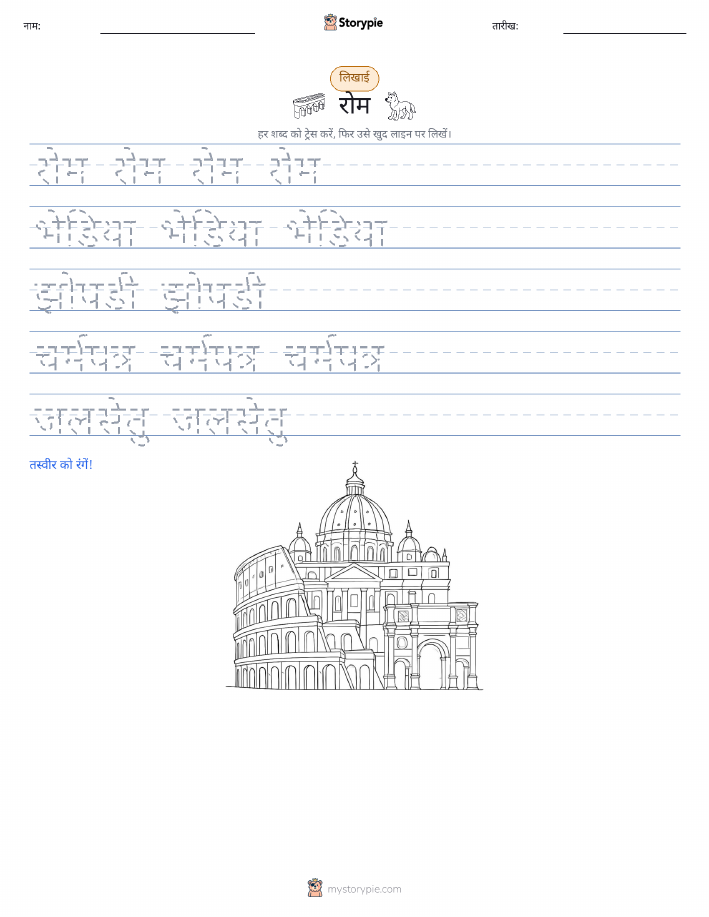 नाम:
Storypie
तारीख:
लिखाई
रोम
हर शब्द को ट्रेस करें, फिर उसे खुद लाइन पर लिखें।
रोम रोम रोम रोम
भेड़िया भेड़िया भेड़िया
झोपड़ी झोपड़ी
चर्मपत्र चर्मपत्र चर्मपत्र
जलसेतु जलसेतु
तस्वीर को रंगें!
mystorypie.com